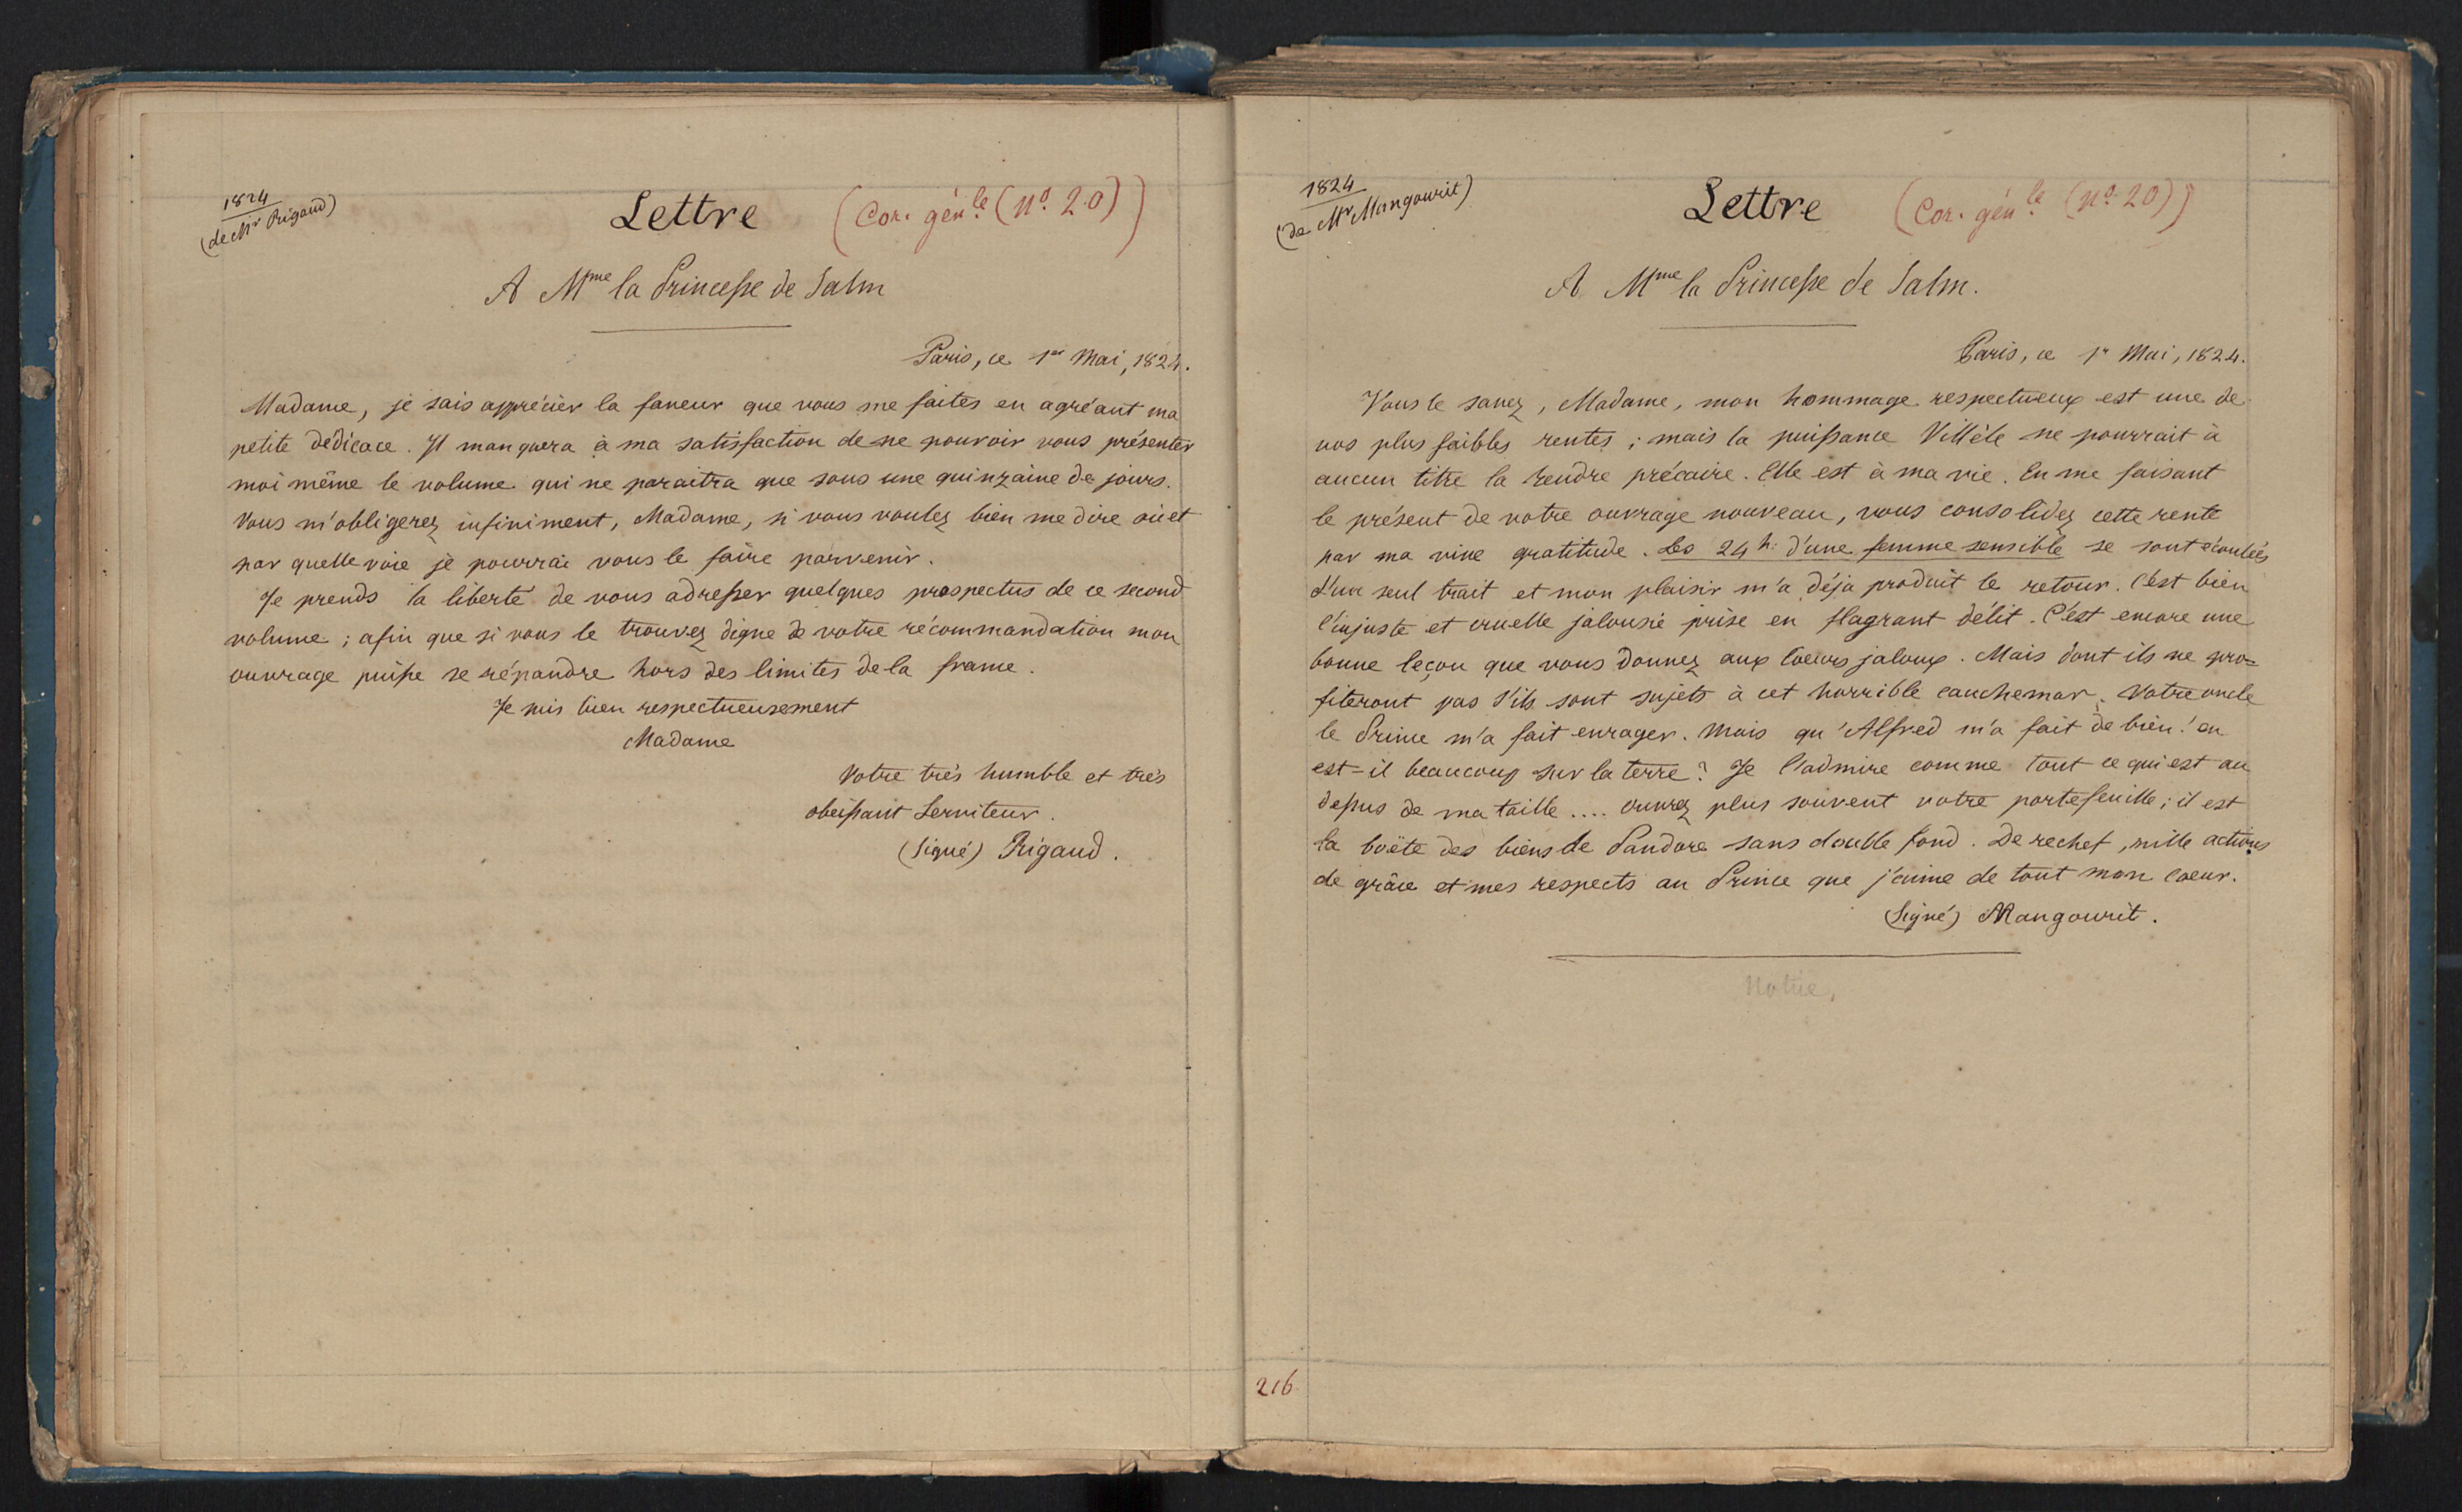 1824
(de Mr Rigaud)
Lettre (Cor. génle (No. 20))
A Mme la Princesse de Salm
Paris, ce 1er Mai, 1824.
Madame, je sais apprécier la faveur que vous me faites en agréant ma
petite dédicace. Il manquera à ma satisfaction de ne pouvoir vous présenter
moi même le volume qui ne paraitra que sous une quinzaine de jours.
Vous m'obligerez infiniment, Madame, si vous voulez bien me dire où et
par quelle voie je pourrai vous le faire parvenir.
Je prends la liberté de vous adresser quelques prospectus de ce second
volume ; afin que si vous le trouvez digne de votre récommandation mon
ouvrage puisse se répandre hors des limites de la france.
Je suis bien respectueusement
Madame
Votre très humble et très
obeissant Serviteur.
(Signé) Rigaud.
1824
(de Mr Mangourit)
Lettre (Cor. génle (No. 20))
A Mme la Princesse de Salm.
Paris, ce 1r Mai, 1824.
Vous le savez, Madame, mon hommage respectueux est une de
vos plus faibles rentes ; mais la puissance Villèle ne pourrait à
aucun titre la rendre précaire. Elle est à ma vie. En me faisant
le présent de votre ouvrage nouveau, vous consolidez cette rente
par ma vive gratitude. Les 24 h. d'une femme sensible se sont écoulées
d'un seul trait et mon plaisir m'a déja produit le retour. C'est bien
l'injuste et cruelle jalousie prise en flagrant délit. C'est encore une
bonne leçon que vous donnez aux Coeurs jaloux. Mais dont ils ne pro=
fiteront pas s'ils sont sujets à cet horrible cauchemar. Votre oncle
le Prince m'a fait enrager. Mais qu'Alfred m'a fait de bien ! en
est=il beaucoup sur la terre ? Je l'admire comme tout ce qui est au
dessus de ma taille .... ouvrez plus souvent votre portefeuille ; il est
la boëte des biens de Pandore sans double fond. De rechef, mille actions
de grâce et mes respects au Prince que j'aime de tout mon Coeur.
(Signé) Mangourit.
216